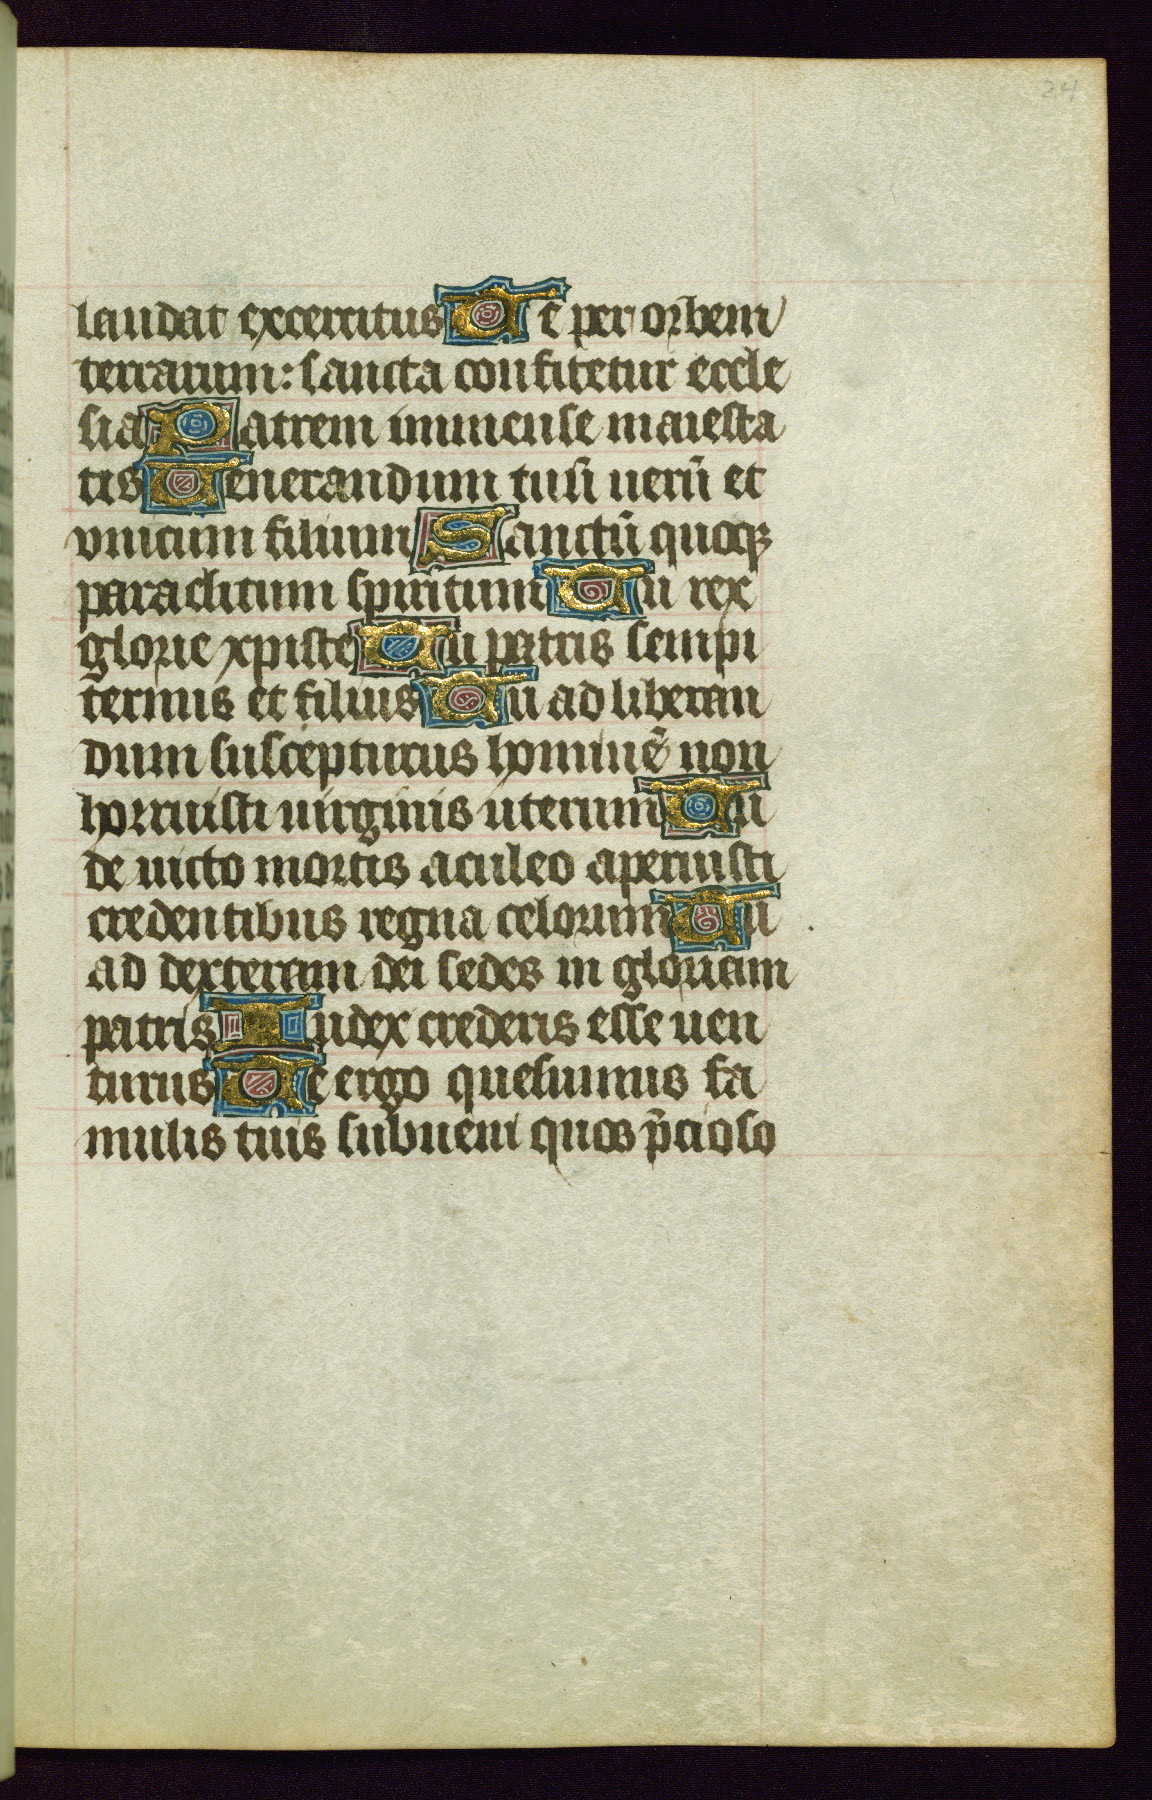 24
laudat excercitus Te per orbem
terrarum: sancta confitetur eccle
sia Patrem inmense maiesta
tis Uenerandum tuū uerū et
vnicum filium Sanctū quoqꝫ
paraclitum spiritum Tu rex
glorie xpiste Tu patris sempi
ternus et filius Tu ad liberan
dum suscepturus hominē non
horruisti uirginis uterum Tu
de uicto mortis aculeo aperuisti
credentibus regna celorum Tu
ad dexteram dei sedes in gloriam
patris Iudex crederis esse uen
turus Te ergo quesumus fa
mulis tuis subueni quos p̄cioso